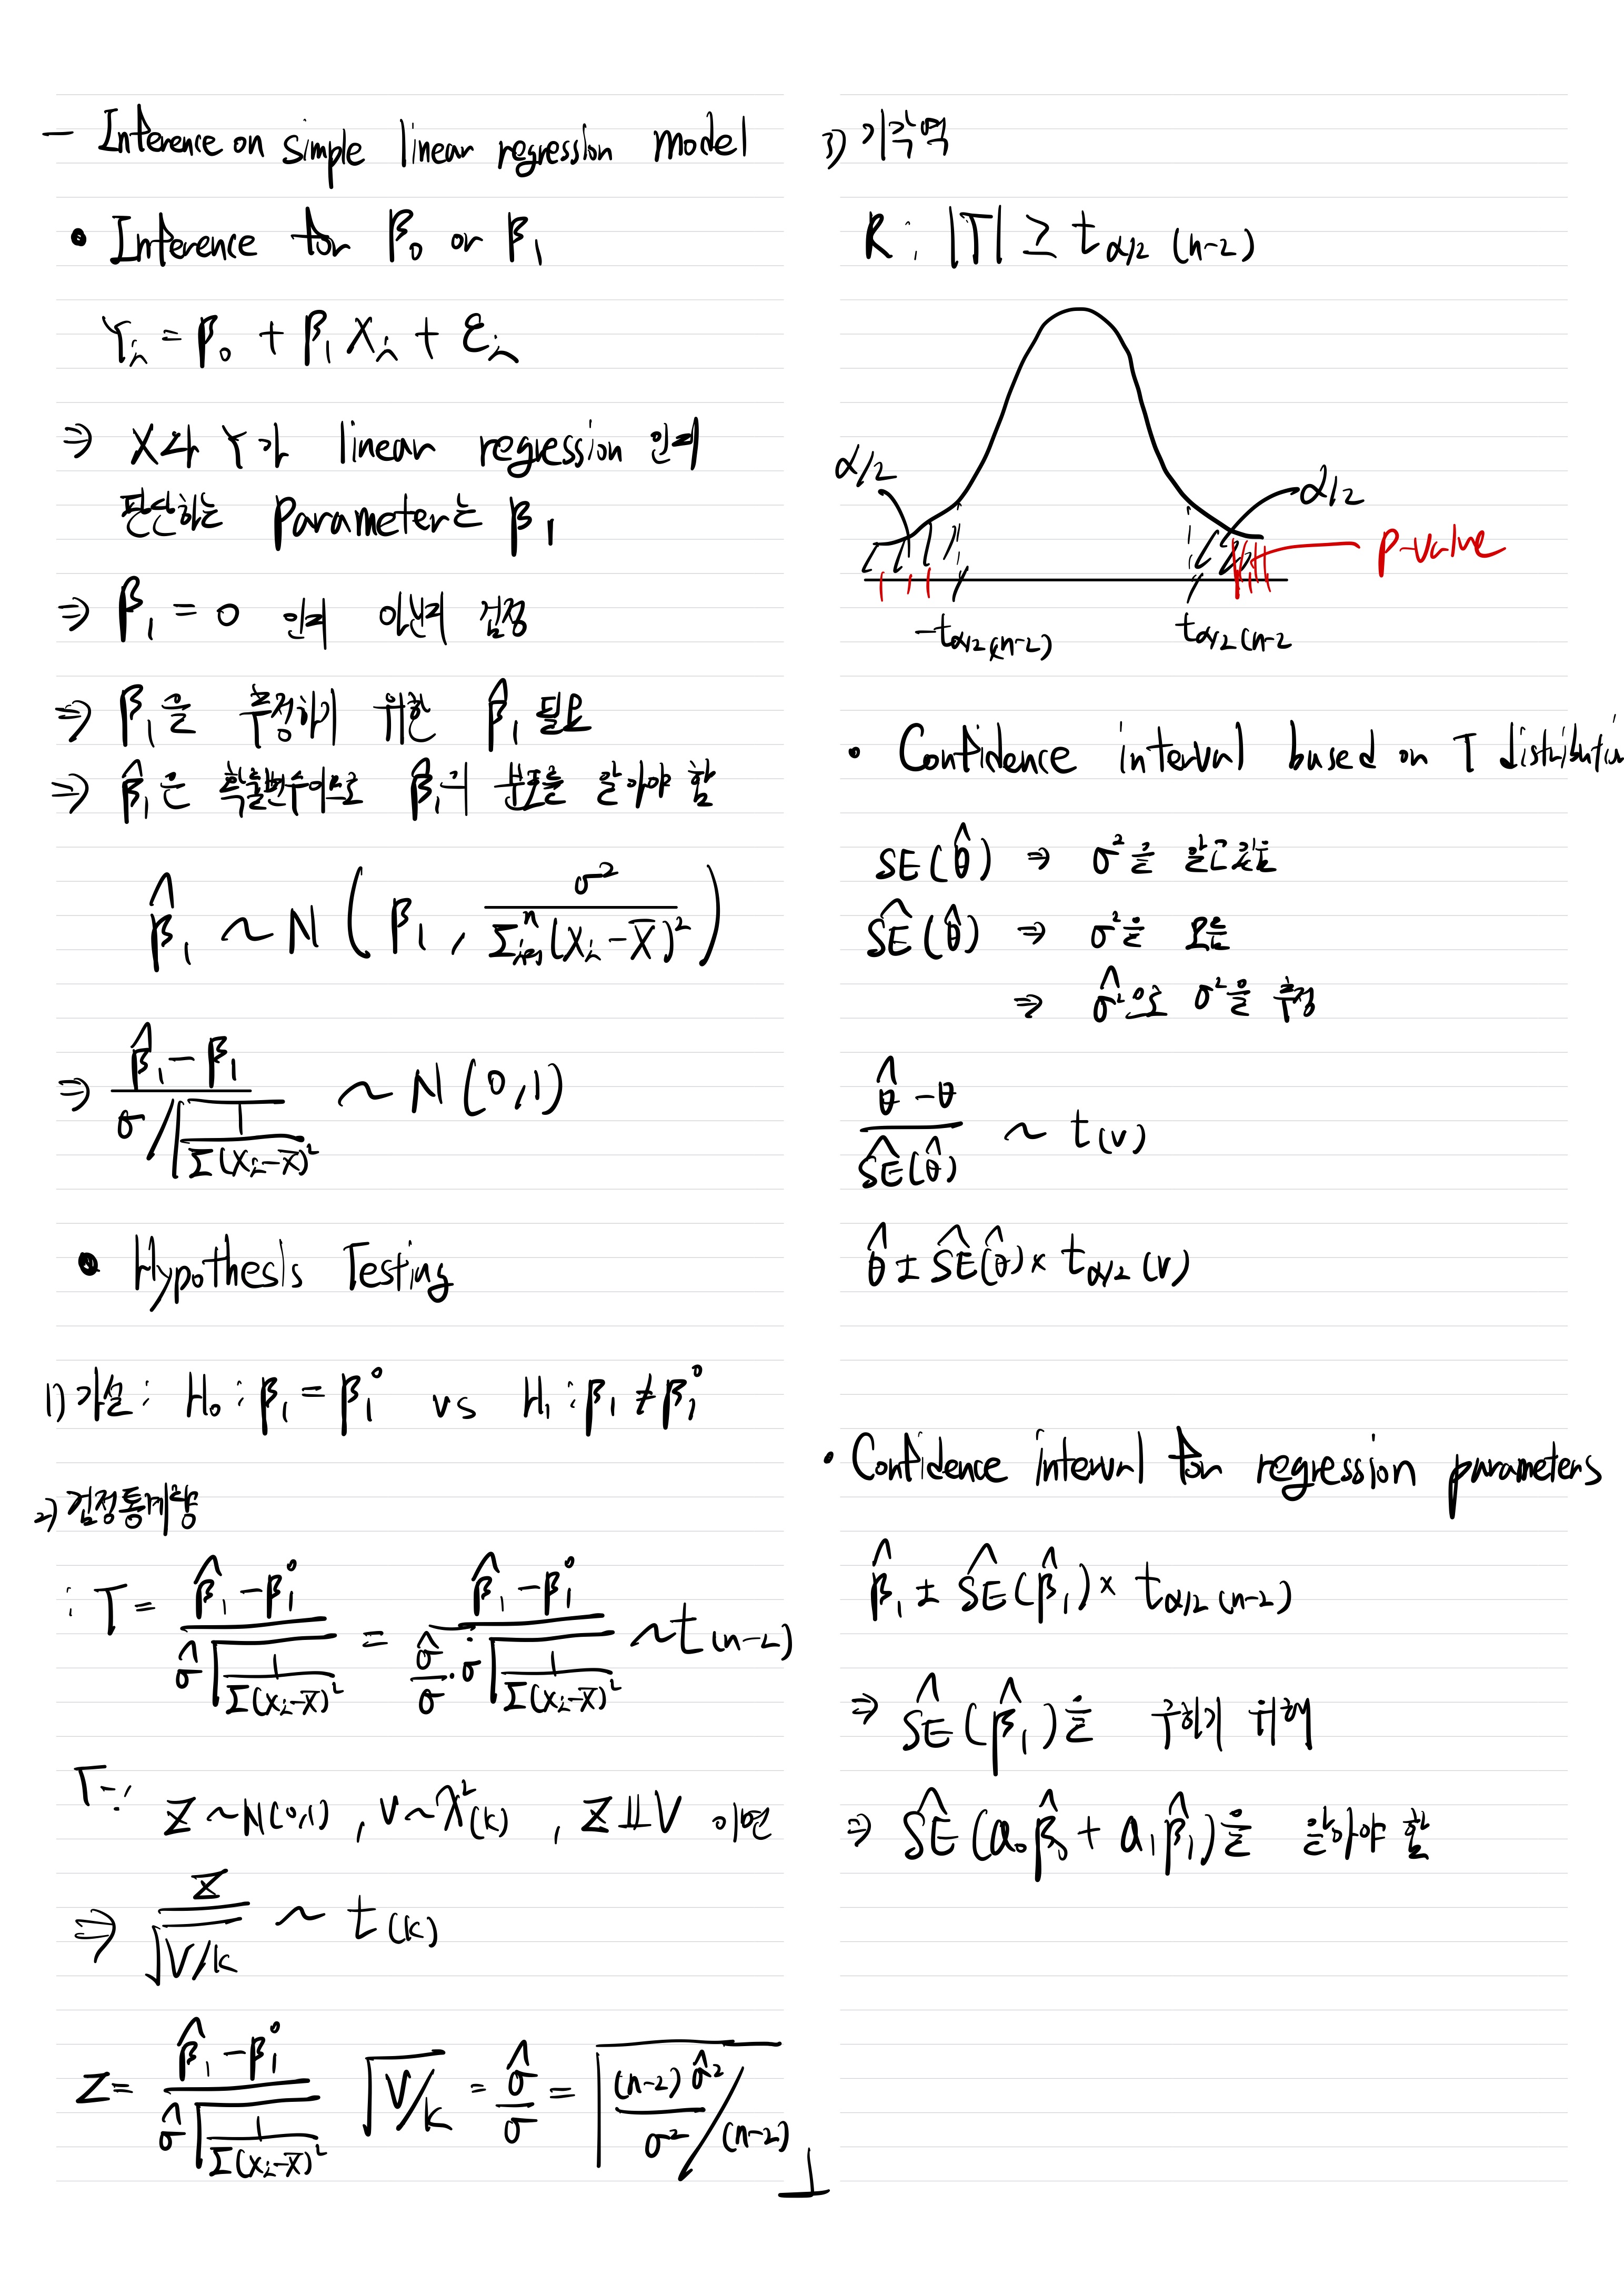 — Inference on simple linear regression model
• Inference for β₀ or β₁
Yᵢ = β₀ + β₁ Xᵢ + εᵢ
⇒ X와 Y가 linear regression 인지
판단하는 Parameter는 β₁
⇒ β₁ = 0 인지 아닌지 검정
⇒ β₁을 추정하기 위한 β̂₁ 필요
⇒ β̂₁은 확률변수이므로 β̂₁의 분포를 알아야 함
β̂₁ ~ N ( β₁ , σ² / Σᵢ₌₁ⁿ (Xᵢ - X̄)² )
⇒ (β̂₁ - β₁) / (σ / √(1 / Σ(Xᵢ - X̄)²)) ~ N(0,1)
• Hypothesis Testing
1) 가설 : H₀ : β₁ = β₁⁰ vs H₁ : β₁ ≠ β₁⁰
2) 검정통계량
: T = (β̂₁ - β₁⁰) / (σ̂ √(1 / Σ(Xᵢ - X̄)²)) = (β̂₁ - β₁⁰) / (σ̂/σ · σ √(1 / Σ(Xᵢ - X̄)²)) ~ t(n-2)
Z ~ N(0,1) , V ~ χ²(k) , Z ⫫ V 이면
⇒ Z / √(V/k) ~ t(k)
Z = (β̂₁ - β₁⁰) / (σ̂ √(1 / Σ(Xᵢ - X̄)²)) √(V/k) = σ̂/σ = √((n-2) σ̂² / σ² / (n-2))
3) 기각역
R : |T| ≥ t α/2 (n-2)
α/2
α/2
p-value
-t α/2 (n-2)
t α/2 (n-2
• Confidence interval based on T distributio
SE(θ̂) ⇒ σ²을 알고있음
ŜE(θ̂) ⇒ σ²을 모름
⇒ σ̂²으로 σ²을 추정
(θ̂ - θ) / ŜE(θ̂) ~ t(v)
θ̂ ± ŜE(θ̂) × t α/2 (v)
• Confidence interval for regression parameters
β̂₁ ± ŜE(β̂₁) × t α/2 (n-2)
⇒ ŜE(β̂₁)을 구하기 위해
⇒ ŜE(a₀β̂₀ + a₁β̂₁)을 알아야 함